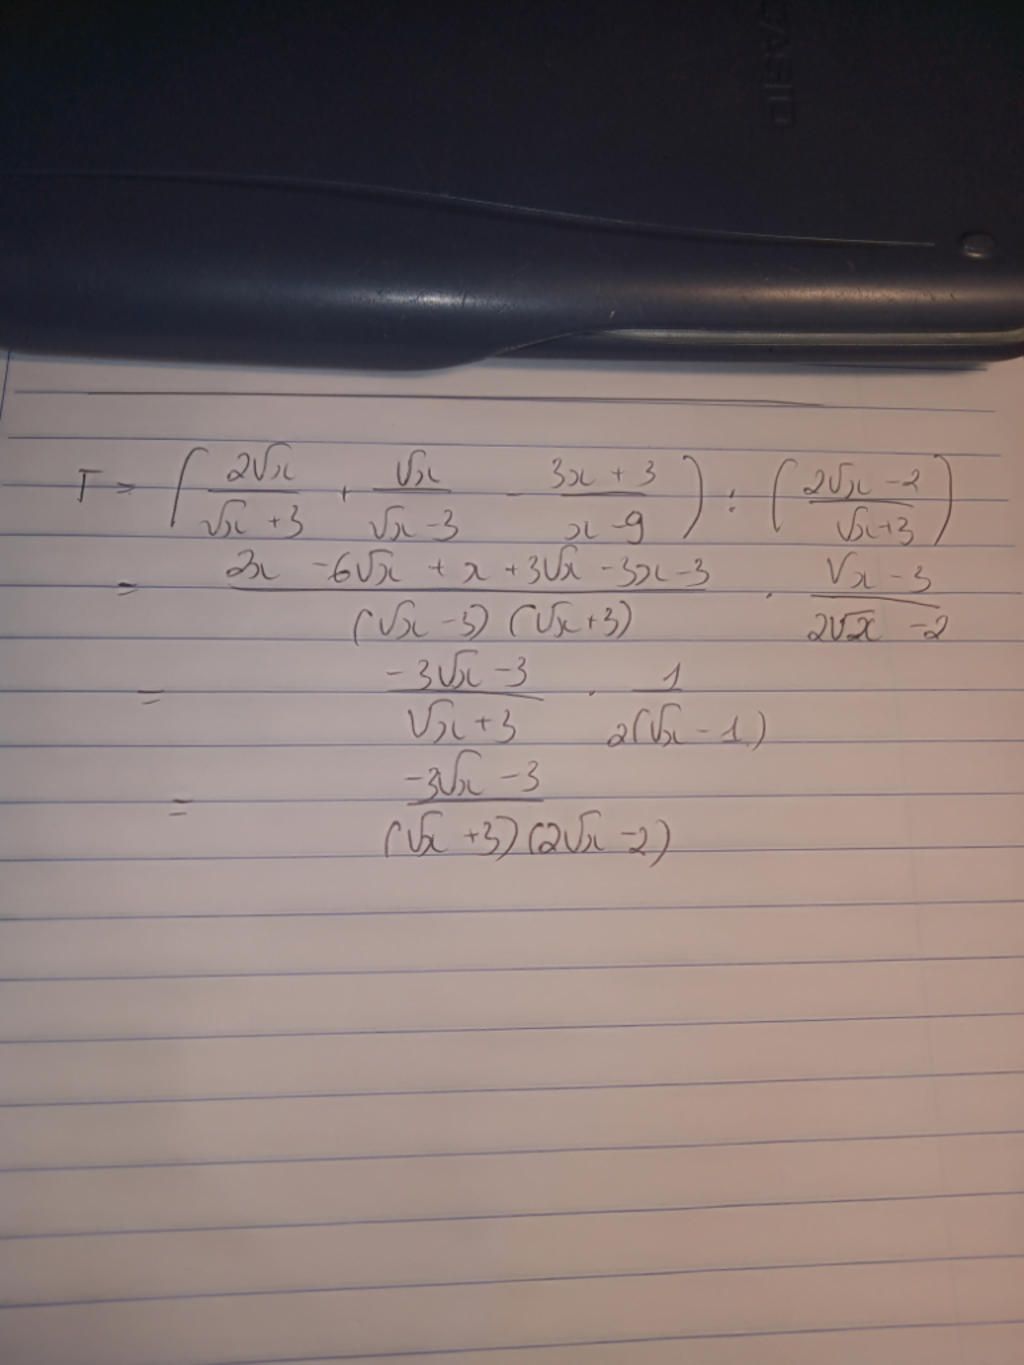 CASIO
T = (2√x / (√x + 3) + √x / (√x - 3) - (3x + 3) / (x - 9)) : ((2√x - 2) / (√x + 3))
= (2x - 6√x + x + 3√x - 3x - 3) / ((√x - 3)(√x + 3)) . (√x - 3) / (2√x - 2)
= (-3√x - 3) / (√x + 3) . 1 / (2(√x - 1))
= (-3√x - 3) / ((√x + 3)(2√x - 2))